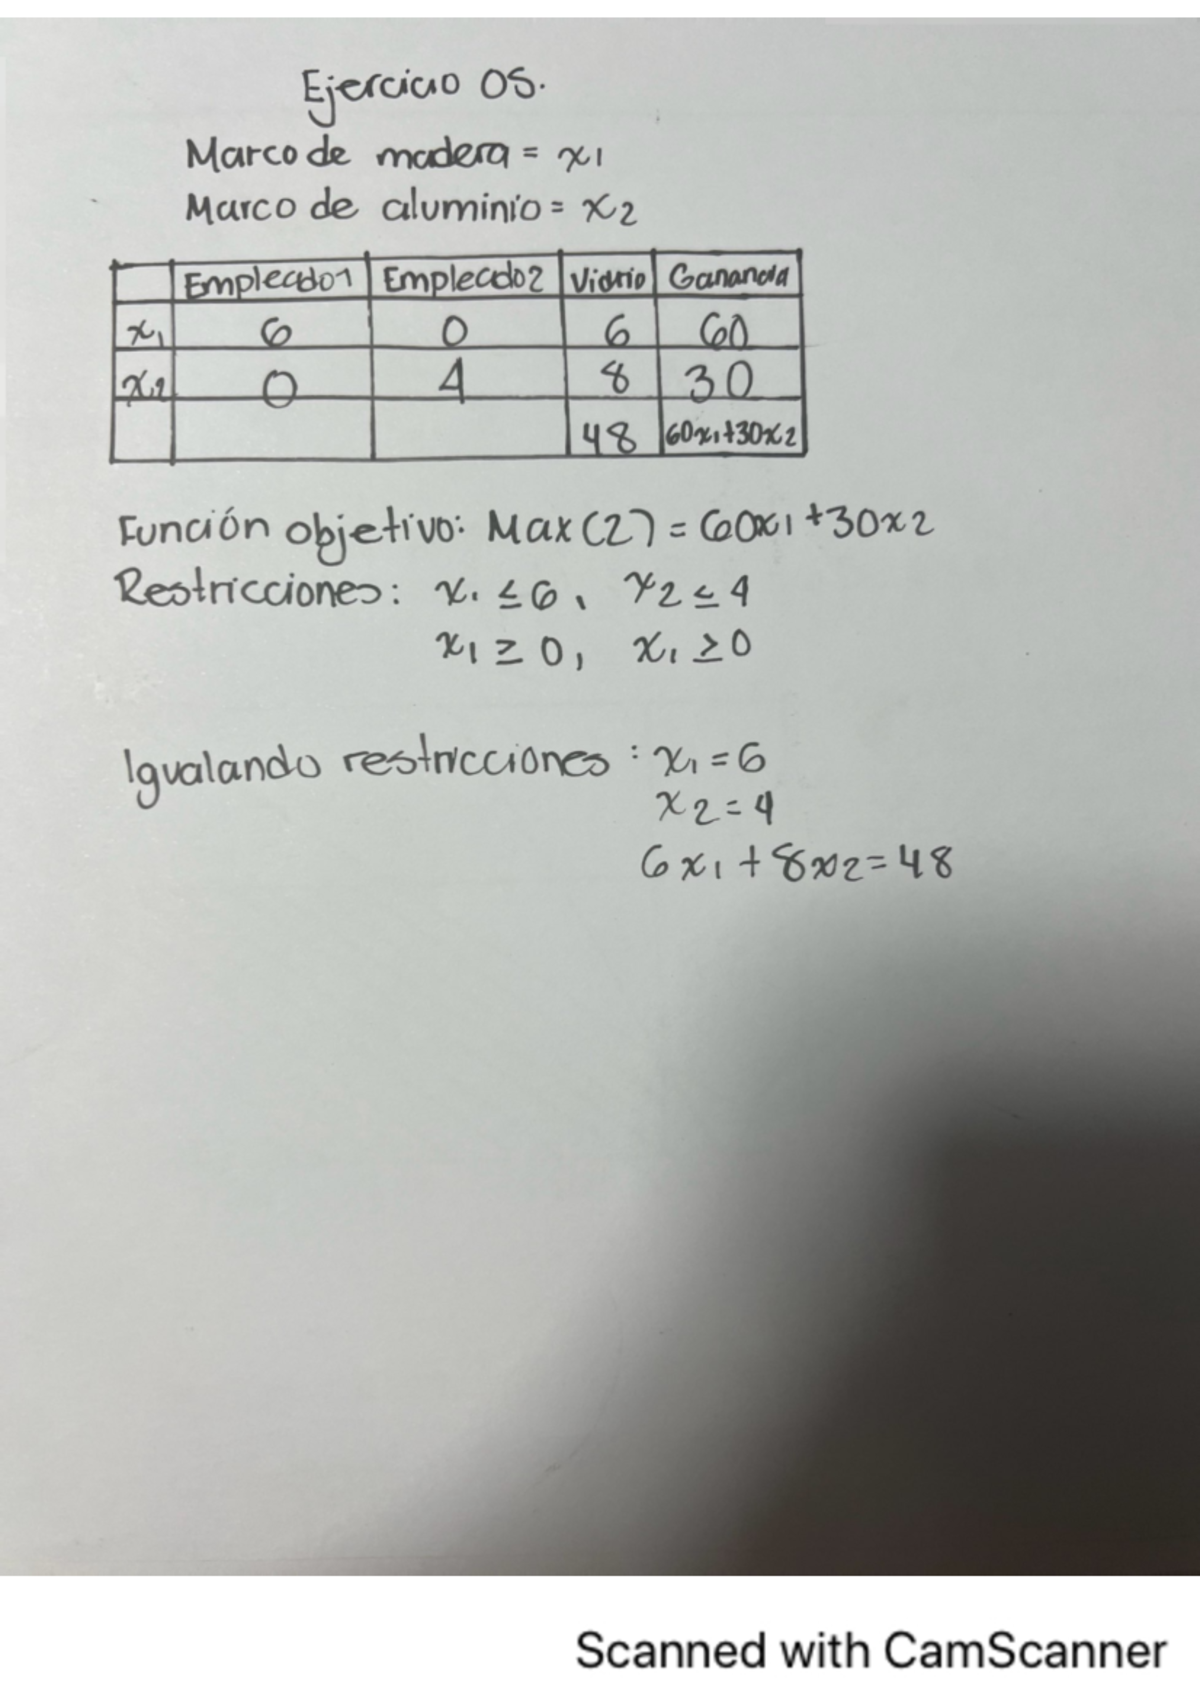 Ejercicio 05.
Marco de madera = x1
Marco de aluminio = x2
Empleado1 Empleado2 Vidrio Ganancia
x1 6 0 6 60
x2 0 4 8 30
48 60x1+30x2
Función objetivo: Max(Z) = 60x1+30x2
Restricciones: x1 ≤ 6, x2 ≤ 4
x1 ≥ 0, x1 ≥ 0
Igualando restricciones : x1 = 6
x2 = 4
6x1 + 8x2 = 48
Scanned with CamScanner